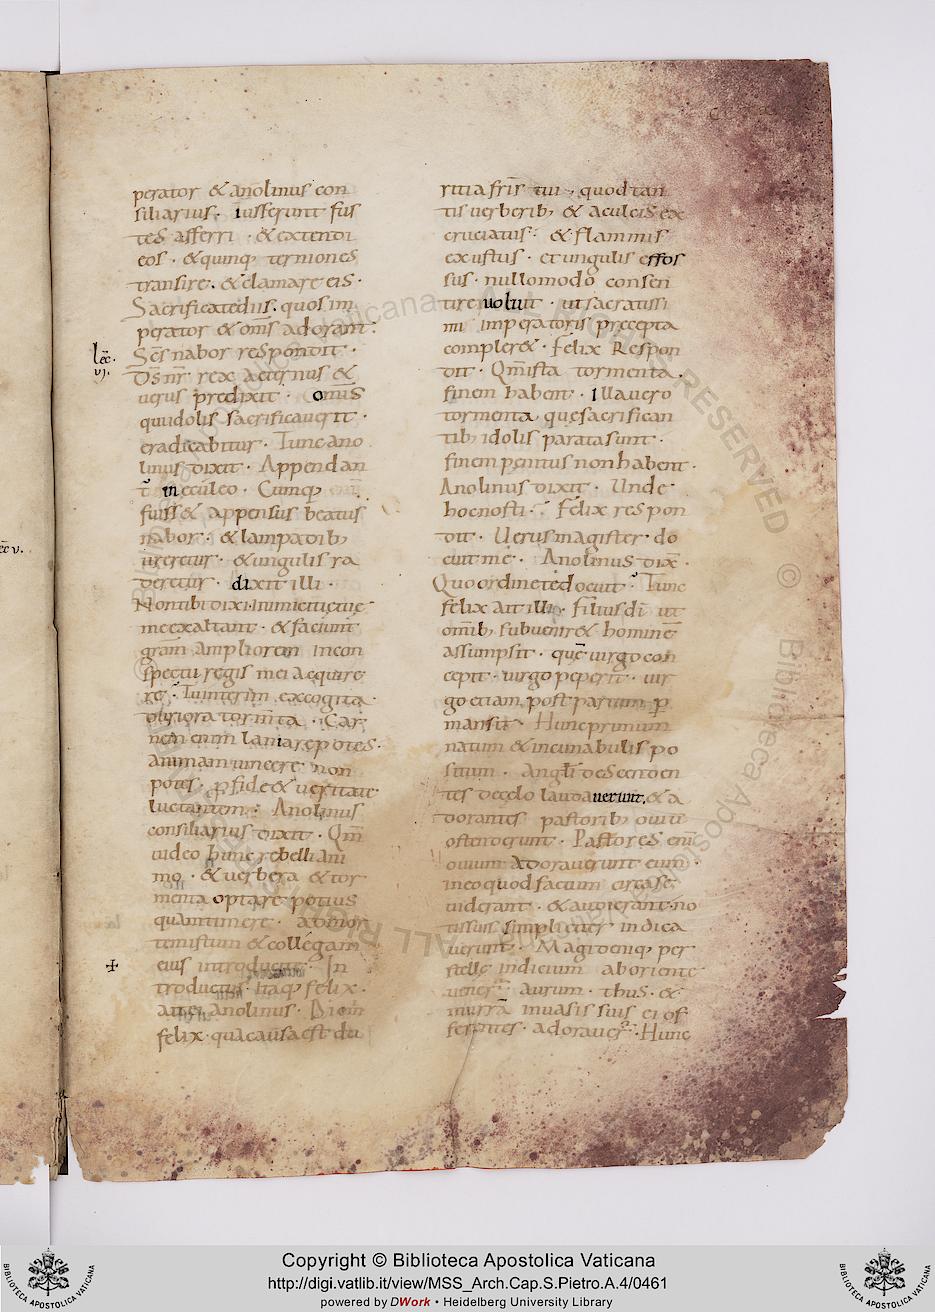 perator & anolinus con
siliarius. iusserunt fus
tes afferri. & extendi
eos. & quinq; terniones
transire. & clamare eis.
Sacrificate diis. quos im
perator & om̄s adorant.
lec̄.
vj.
Sc̄s nabor respondit.
Dn̄s nr̄ rex aeternus &
uerus predixit. omnis
qui idolis sacrificauerit.
eradicabitur. Tunc ano
linus dixit. Appendan
t̄ in eculeo. Cumq;
fuiss& appensus beatus
nabor. & lampadib;
ureretur. & ungulis ra
deretur. dixit illi.
Non tibi dixi. inimici tui
me exaltant. & faciunt
gram̄ ampliorem in con
spectu regis mei acquire
re. Tu interim excogita
duriora torm̄ta. Car
nem enim laniare potes.
animam uincere non
potes. ꝓ fide & ueritate
luctantem. Anolinus
consiliarius dixit. Qm̄
uideo hunc rebelli ani
mo. & uerbera & tor
menta optare potius
quam timere. ab
temistum & collegam
eius introducite. In
troductus itaq; felix.
ait ei anolinus. Dic
felix qua causa est du
ritia fr̄is tui. quod tan
tis uerberib; & aculeis ex
cruciatus. & flammis
exustus. et ungulis effos
sus. nullomodo consen
tire uoluit. ut sacratissi
mi imperatoris precepta
compler&. Felix Respon
dit. Qm̄ ista tormenta.
finem habent. Illa uero
tormenta, que sacrifican
tib; idolis parata sunt.
finem penitus non habent.
Anolinus dixit. Unde
hoc nosti. Felix respon
dit. Uerus magister do
cuit me. Anolinus dix̄.
Quo ordine te docuit. Tunc
felix ait illi. Filius dī ut
omīb; subuenir& hominē
assumpsit. quē uirgo con
cepit. uirgo peperit. uir
go etiam post partum ꝑ
mansit. Hunc primum
natum & incunabulis po
situm. Angl̄i descenden
tes de celo laudauerunt. & a
dorantes pastorib; ouiū
ostenderunt. Pastores eni
ouium adorauerunt eum.
in eo quod factum circa se
uiderant. & audierant. no
tissus simpliciter indica
uerunt. Magi denq; per
stelle indicium ab oriente
uener̄. aurum. thus. &
murrā in uasis suis ei of
ferentes. adorauer̄. Hunc
Copyright © Biblioteca Apostolica Vaticana
http://digi.vatlib.it/view/MSS_Arch.Cap.S.Pietro.A.4/0461
powered by DWork • Heidelberg University Library